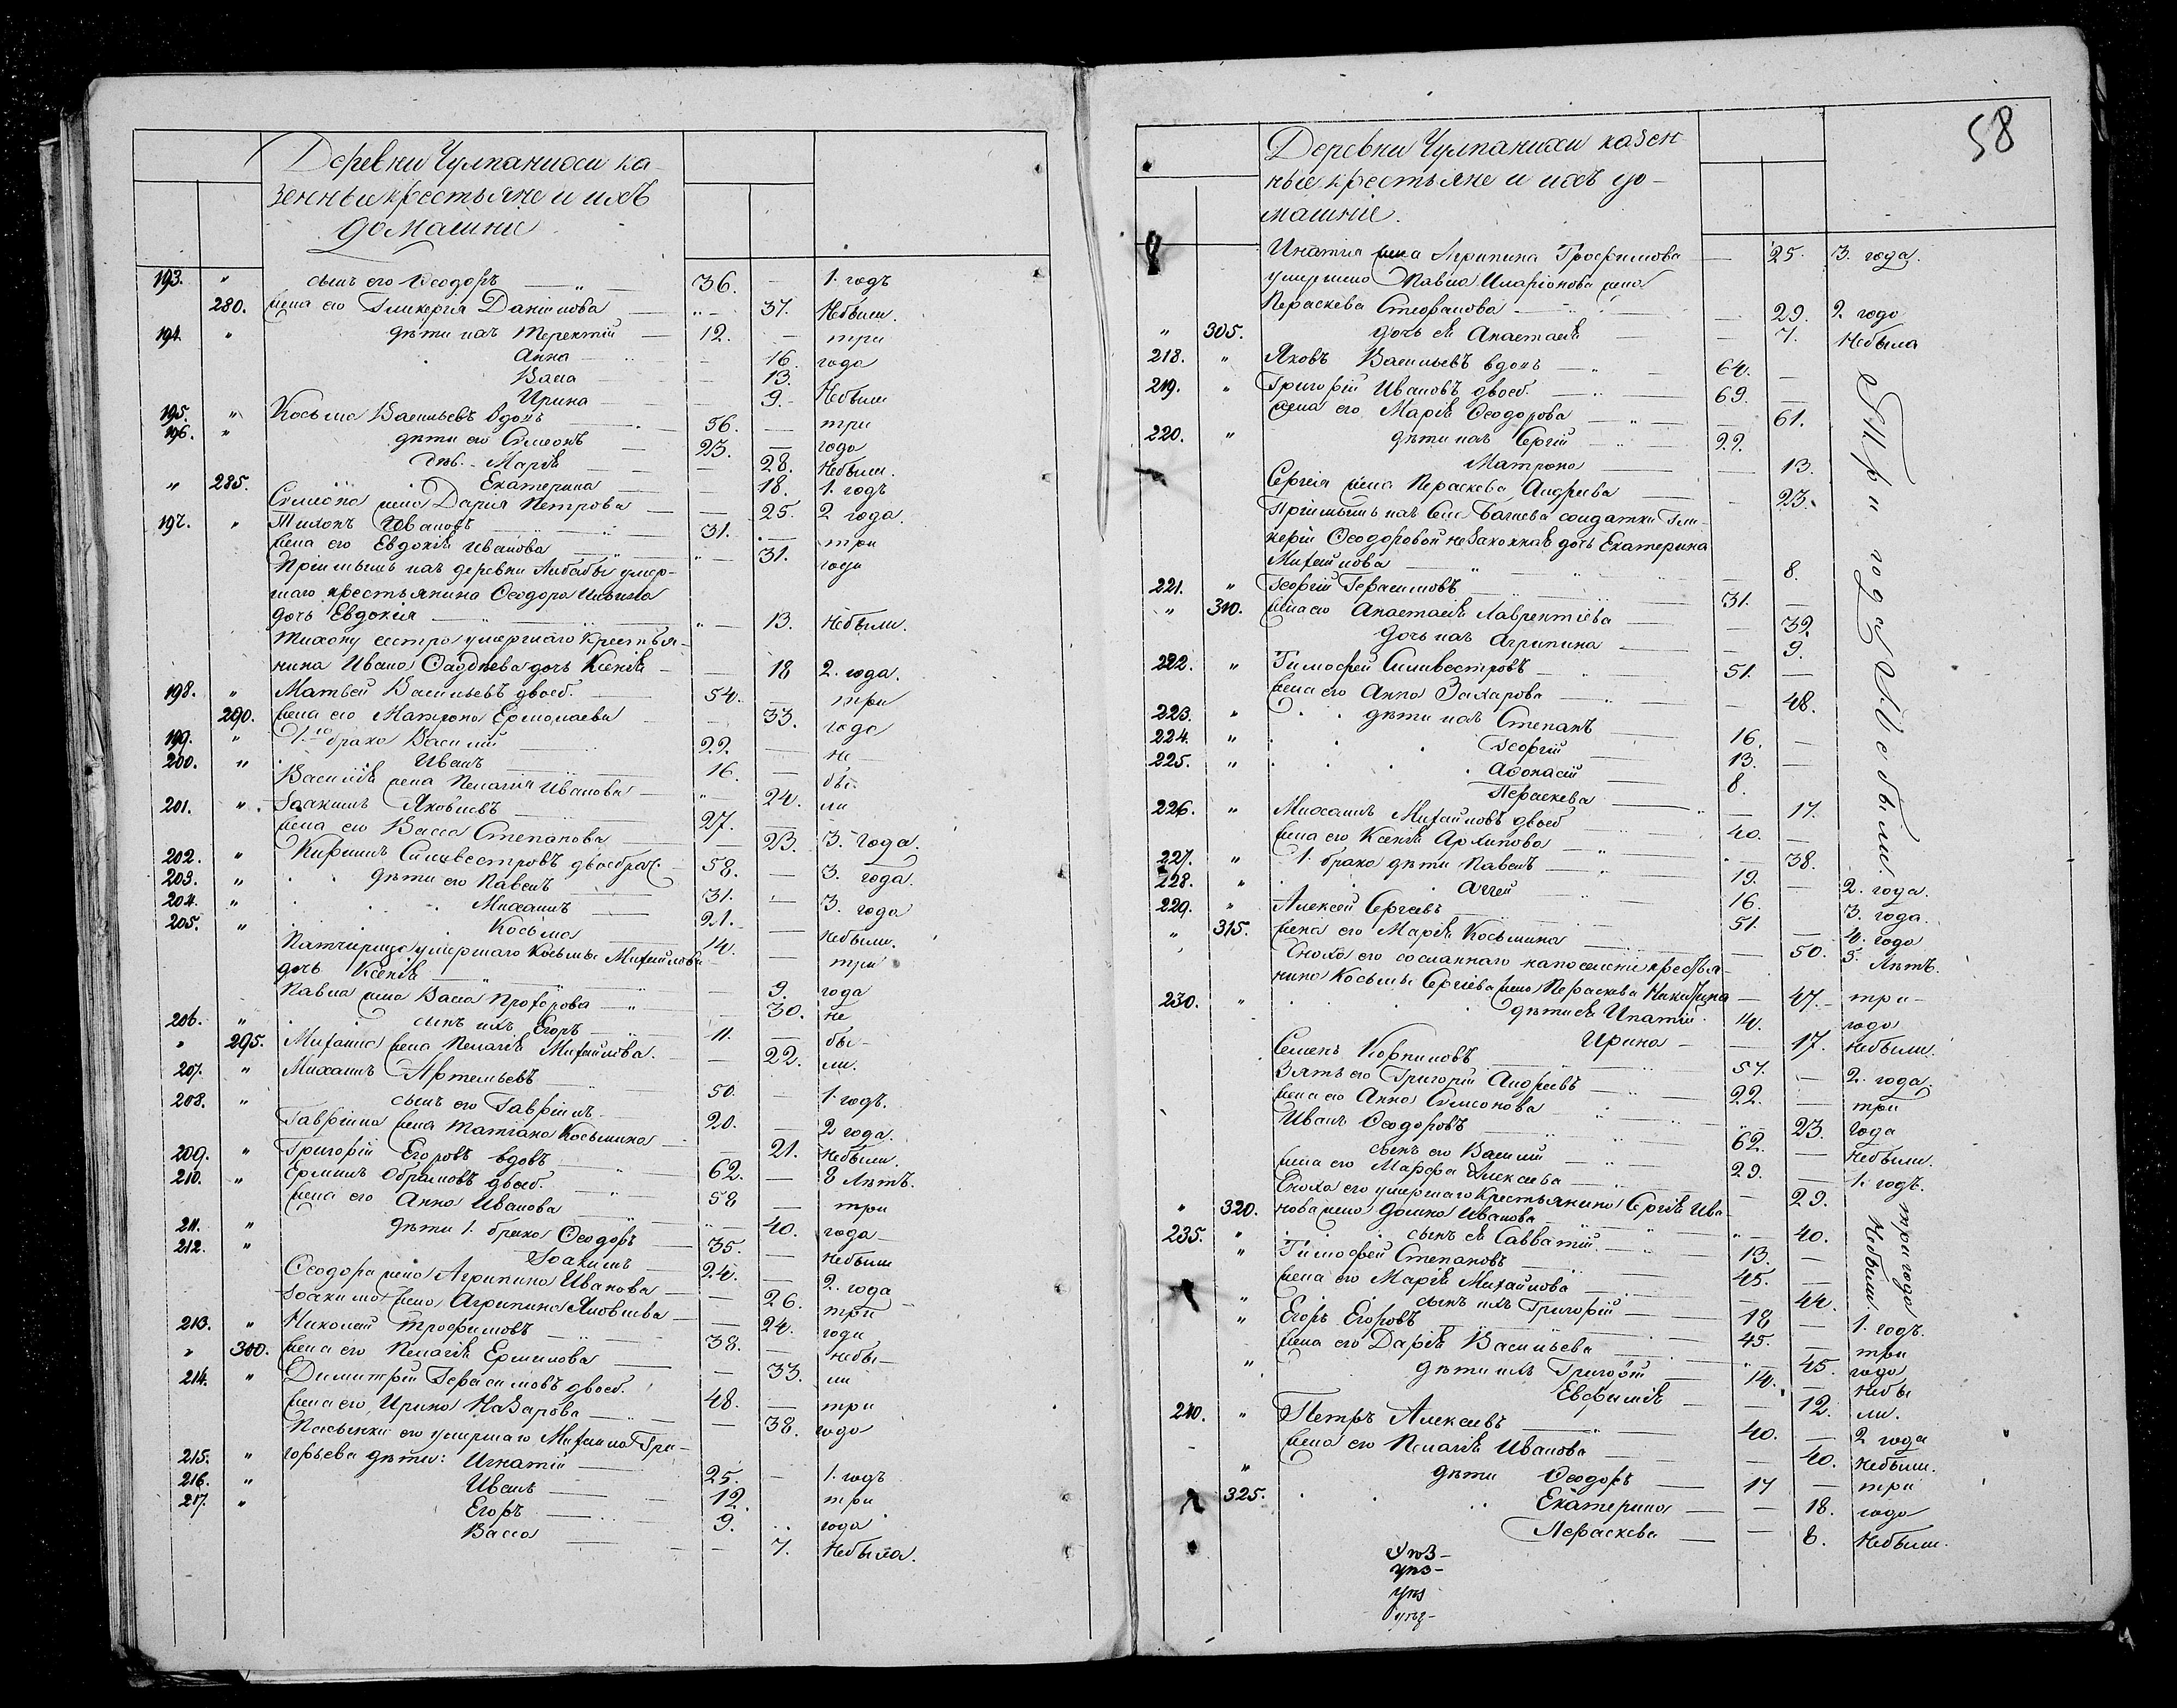 Деревни Чулпанихи ка-
зенные крестьяне и ихъ
домашніе
193. " сынъ его Ѳеодоръ — " — 36. — 1. годъ
280. жена его Гликерія Даніилова — " — 37. Небыли.
194. " дѣти ихъ Терентій — 12. — три
Анна — — 16. года
Васса — — 13.
Ирина — — 9. Небыли
195. " Косьма Васильевъ вдовъ — 56. — три
196. " дѣти его Симеонъ — 23. — года
дѣв. Марія — — 28. Небыли.
" 285. Екатерина — — 18. 1. годъ
Симеона жена Дарія Петрова — — 25. 2 года.
197. " Тихонъ Ивановъ — 31. — три
жена его Евдокія Иванова — " — 31. года
Пріимышъ изъ деревни умер-
шаго крестьянина Ѳеодора Ильина
дочь Евдокія — " — 13. Небыли.
Тихону сестра умершаго крестья-
нина Ивана дочь Ксенія — — 18 2. года.
198. " Матвей Васильевъ двоеб. — 54. — три
290. жена его Матрона Ермолаева — — 33. года
199. " 1-го брака Василій — 22. — не
200. " Иванъ — 16. — бы-
Василія жена Пелагія Иванова — " — 24. ли
201. " Іоакимъ Яковлевъ — 27. —
жена его Васса Степанова — — 23. 3. года.
202. " Кирилъ Сильвестровъ двоебрач. — 58. — 3. года.
203. " дѣти его Павелъ — 31. — 3. года
204. " Михаилъ — 21. — Небыли.
205. " Косьма — 14. — три
Патчирица умершаго Косьмы Михайлова
дочь Ксенія — — 9. года
Павла жена Васса Прохорова — " — 30. не
206. " сынъ ихъ Егоръ — 11. — бы-
" 295. Михаила жена Пелагія Михайлова. — — 22. ли.
207. " Михаилъ Артемьевъ — 50. — 1. годъ.
208. " сынъ его Гавріилъ — 20. — 2 года.
Гавріила жена Татіана Косьмина — — 21. Небыли.
209. " Григорій Егоровъ вдовъ — 62. — 8 лѣтъ.
210. " Ермилъ двоеб. — 58 — три
жена его Анна Иванова — " — 40. года
211. " дѣти 1. брака Ѳеодоръ — 35. — Небыли
212. " Іоакимъ — 24. — 2. года
Ѳеодора жена Агрипина Иванова — — 26. три
Іоакима жена Агрипина Яковлева — — 24. года
213. " Николай Трофимовъ — 38. — небы-
" 300. жена его Пелагія Ермилова — — 33. ли
214. " Димитрій Герасимовъ двоеб. 48. — три
жена его Ирина Назарова — — 38. года
Пасынки его умершаго Михаила Гри-
215. " горьева дѣти: Игнатій — 25. — 1. годъ
216. " Иванъ — 12. три
217. " Егоръ — 9. года
Васса — — 7. Небыла.
58
Деревни Чулпанихи казен
ные крестьяне и ихъ до-
машніе.
Игнатія жена Агрипина Трофимова — 25. 3. года.
умершаго Павла Иларіонова жена
Пераскева Стефанова — — 29. 2. года
" 305. дочь ея Анастасія — — 7. Небыла
218. " Яковъ Васильевъ вдовъ — " — 64. —
219. " Григорій Ивановъ двоеб. — 69. —
жена его Марія Ѳеодорова — " — 61.
220. " дѣти ихъ Сергій — 22.
Матрона — — 13.
Сергія жена Пераскева Андреева — — 23.
Пріимышъ изъ Села солдатки Гли-
керіи Ѳеодоровой незаконная дочь Екатерина
Михайлова — " — 8.
221. " Георгій Герасимовъ — 31. —
" 310. жена его Анастасія Лаврентіева — — 39.
дочь ихъ Агрипина — — 9.
222. " Тимофей Силивестровъ — 51. —
жена его Анна Захарова — — 48.
223. " дѣти ихъ Степанъ — 16. —
224. " Георгій — 13. —
225. " Афонасій — 8.
Пераскева — — 17.
226. " Михаилъ Михайловъ двоеб — 40. —
жена его Ксенія Архипова — " — 38.
227. " 1. брака дѣти Павелъ — 19. — 2. года.
228. " Аггей — 16. 3. года.
229. " Алексей Сергеевъ — 51. — 4. года
" 315. жена его Марія Косьмина — — 50. 5. лѣтъ.
Три года Небыли.
Сноха его сосланнаго напоселеніе крестья-
нина Косьмы Сергіева жена Пераскева Никитина — 47. три-
230. " дѣти ея Ипатій 14. года
Ирина — — 17. Небыли.
Семенъ Корниловъ — 57. — 2. года.
Зять его Григорій Андреевъ — 22. — три
жена его Анна Симеонова — " — 23. года
Иванъ Ѳеодоровъ — 62. — Небыли.
сынъ его Василій — 29. — 1. годъ.
жена его Марфа Алексеева — — 29.
Сноха его умершаго крестьянина Сергія Ива-
" 320. нова жена Домна Иванова — " — 40.
235. " сынъ ея Савватій — 13. —
" Тимофей Степановъ — 45. —
жена его Марія Михайлова — — 44.
три года Небыли.
" сынъ ихъ Григорій — 18 — 1. годъ.
" Егоръ Егоровъ — 45. — три
жена его Дарія Васильева — " — 45. года
" дѣти ихъ Григорій — 14. — Небы
Евфимія — — 12. ли.
240. " Петръ Алексеевъ — 40. — 2 года
жена его Пелагія Иванова — — 40. Небыли.
" дѣти Ѳеодоръ — 17 — три
325. Екатерина — — 18. года
Пераскева — — 8. Небыли.